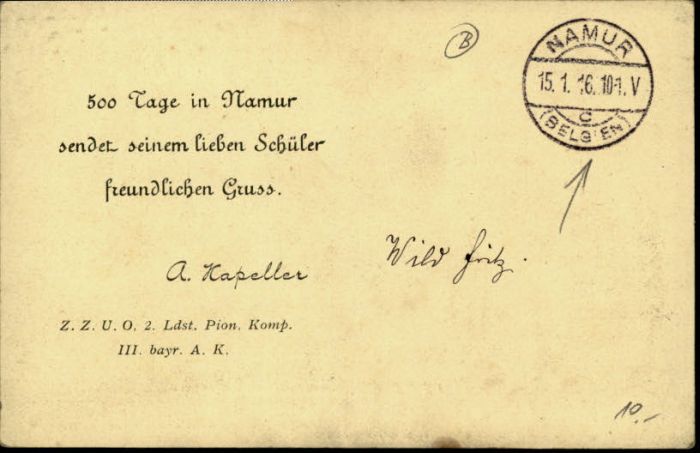 500 Tage in Namur
sendet seinem lieben Schüler
freundlichen Gruss.
A. Kapeller
Z. Z. U. O. 2. Ldst. Pion. Komp.
III. bayr. A. K.
B
NAMUR
15. 1. 16. 10-1. V
C
(BELGIEN)
Wild Fritz.
10.-